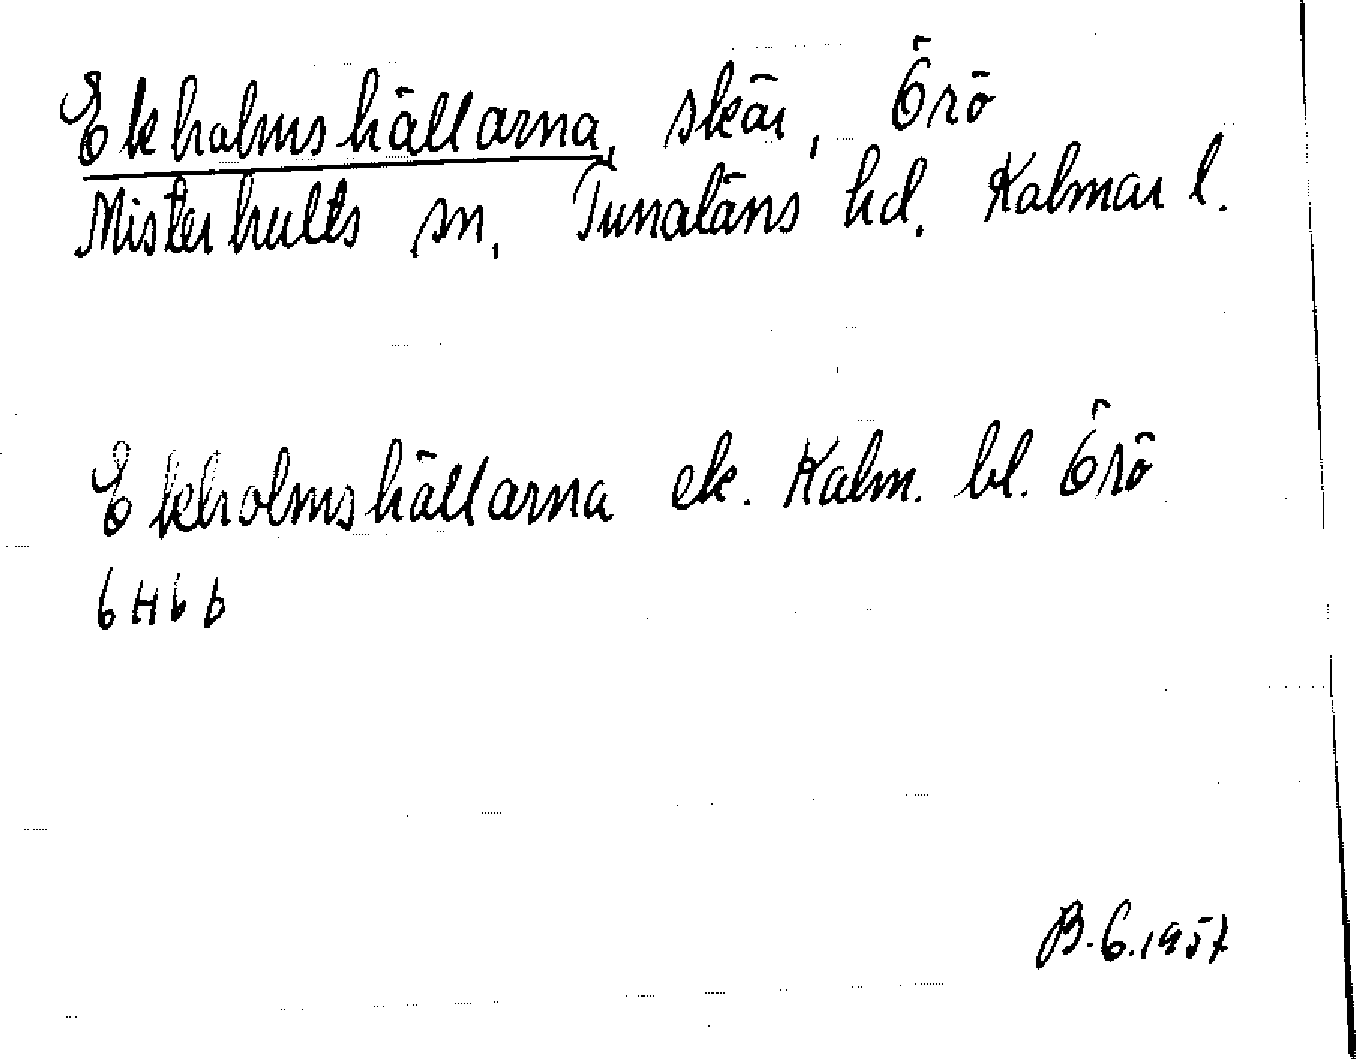 Ekholmshällarna, skär, Örö
Misterhults sn, Tunaläns hd. Kalmar l.
Ekholmshällarna ek. Kalm. bl. Örö
6H6b
B.G.1957